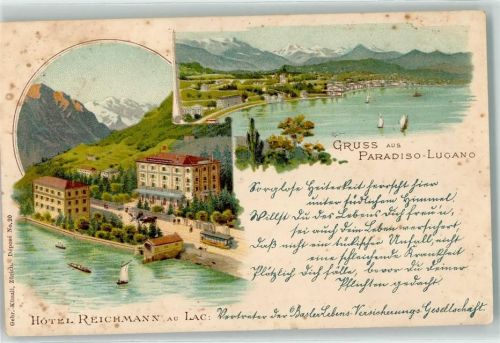 GRUSS AUS
PARADISO-LUGANO
Sorglose Heiterkeit herrscht hier
unter südlichem Himmel.
Willst Du des Lebens Dich freu'n,
sei auch dem versichert,
Daß nicht ein tückischer Unfall, nicht
eine schleichende Krankheit
Plötzlich Dich fälle, bevor du deiner
Pflichten gedacht
HÔTEL REICHMANN, AU LAC:
Vertreter der Basler Lebens-Versicherungs Gesellschaft.
Gebr. Künzli, Zürich. Déposé No. 20